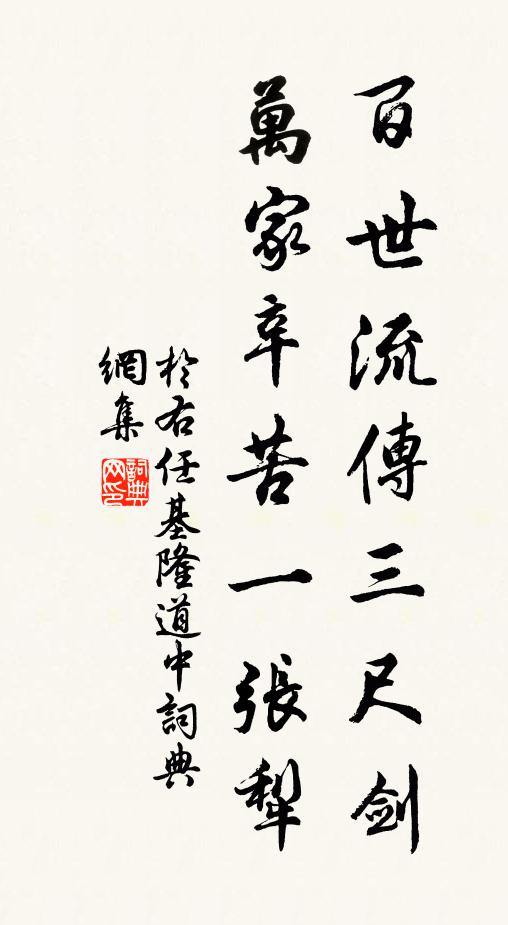 百世流傳三尺劍
萬家辛苦一張犁
於右任基隆道中詞典
網集
詞典網印